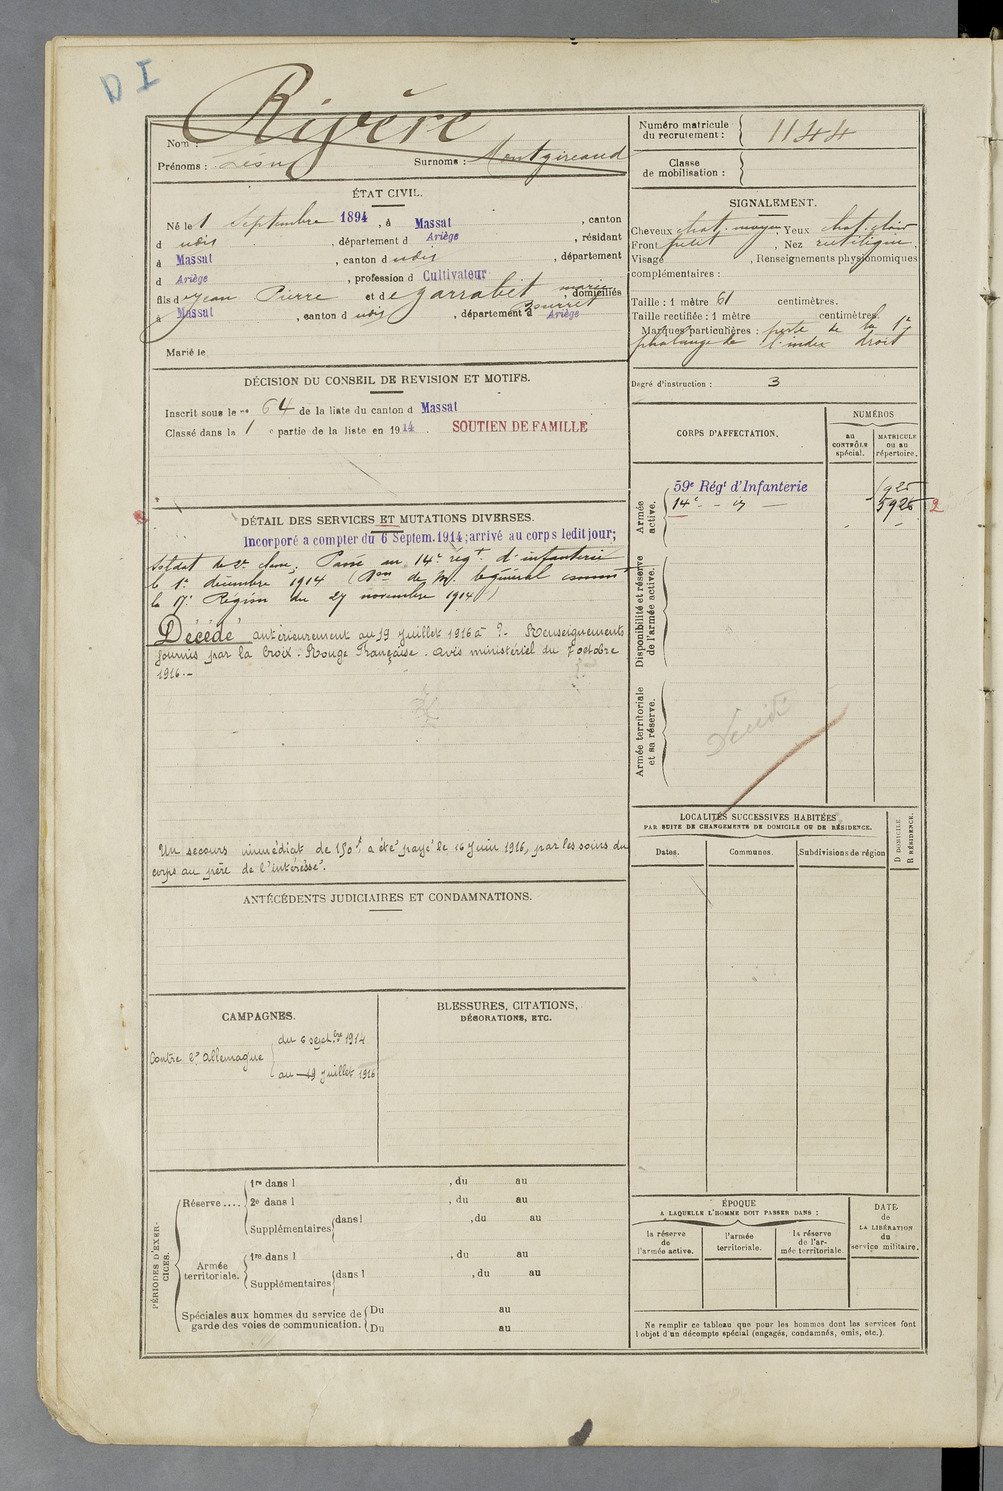 D I
Rivère
Nom :
Prénoms : Jésu
Surnoms : Montgireaud
Numéro matricule
du recrutement : 1144
Classe
de mobilisation :
ÉTAT CIVIL.
Né le 1 Septembre 1894, à Massat, canton
d udis, département d Ariège, résidant
à Massat, canton d udis, département
d Ariège, profession de Cultivateur
fils de Jean Pierre et de Garrabet marie, domiciliés
Bourret
à Massat, canton d udis, département d Ariège
Marié le
SIGNALEMENT.
Cheveux chat. moyen, Yeux chat. clair
Front petit, Nez rectiligne,
Visage , Renseignements physionomiques
complémentaires :
Taille : 1 mètre 61 centimètres.
Taille rectifiée : 1 mètre centimètres.
Marques particulières : perte de la 1e
phalange de l'index droit
Degré d'instruction : 3
DÉCISION DU CONSEIL DE REVISION ET MOTIFS.
Inscrit sous le no 64 de la liste du canton d Massat
Classé dans la 1 e partie de la liste en 1914. SOUTIEN DE FAMILLE
CORPS D'AFFECTATION.
NUMÉROS
AU CONTRÔLE spécial.
MATRICULE ou au répertoire.
Armée active.
59e Régt d'Infanterie
14e - - id -
5926 2
Disponibilité et réserve de l'armée active.
Armée territoriale et sa réserve.
Décédé
DÉTAIL DES SERVICES ET MUTATIONS DIVERSES.
Incorporé a compter du 6 Septem. 1914; arrivé au corps ledit jour;
Soldat de 2e classe; Passé au 14e régt d'infanterie
le 1er décembre 1914 (Don de M. le général commt
la 17e Région du 27 novembre 1914)
Décédé antérieurement au 19 juillet 1916 à ?- Renseignements
fournis par la Croix-Rouge Française. Avis ministériel du 7 octobre
1916.-
Un secours immédiat de 150f a été payé le 16 Juin 1916, par les soins du
corps au père de l'intéressé.
LOCALITÉS SUCCESSIVES HABITÉES
PAR SUITE DE CHANGEMENTS DE DOMICILE OU DE RÉSIDENCE.
Dates. Communes. Subdivisions de région
D DOMICILE. R RÉSIDENCE.
ANTÉCÉDENTS JUDICIAIRES ET CONDAMNATIONS.
CAMPAGNES.
Contre l'Allemagne
du 6 septbre 1914
au 19 juillet 1916
BLESSURES, CITATIONS,
DÉCORATIONS, ETC.
PÉRIODES D'EXERCICES.
Réserve....
1re dans l , du au
2e dans l , du au
Supplémentaires dans l , du au
Armée territoriale.
1re dans l , du au
Supplémentaires dans l , du au
Spéciales aux hommes du service de
garde des voies de communication.
Du au
Du au
ÉPOQUE
A LAQUELLE L'HOMME DOIT PASSER DANS :
la réserve de l'armée active.
l'armée territoriale.
la réserve de l'armée territoriale.
DATE de LA LIBÉRATION du service militaire.
Ne remplir ce tableau que pour les hommes dont les services font
l'objet d'un décompte spécial (engagés, condamnés, omis, etc.).